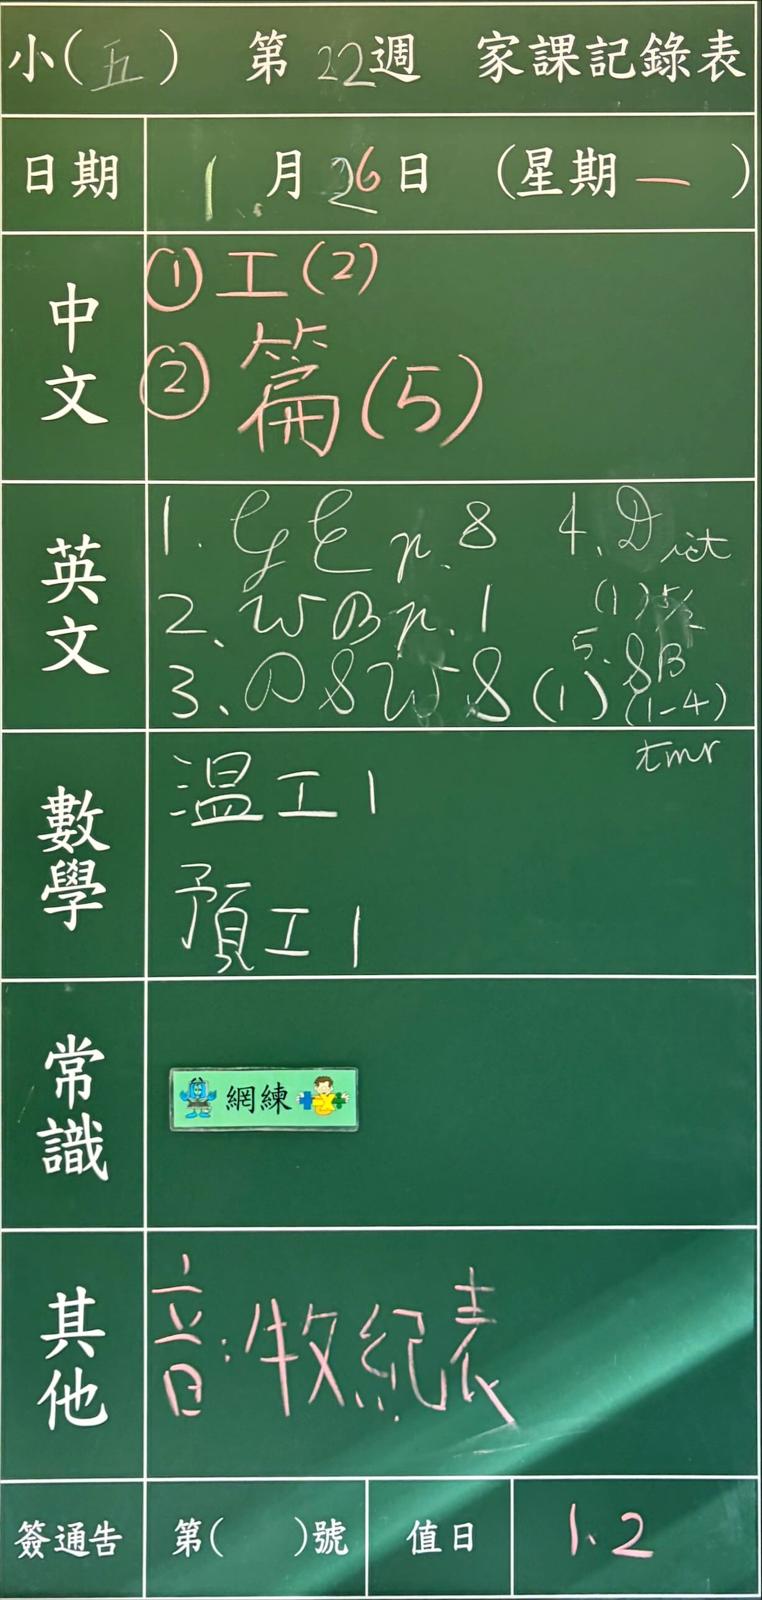 小(五) 第22週 家課記錄表
日期 1月26日 (星期一)
中文
① 工(2)
② 篇(5)
英文
1. GE p.8
2. WB p.1
3. DSWS(1)
4. Dict
(1)
5. SB
(1-4)
tmr
數學
温工1
預工1
常識
網練
其他
音:牧紀表
簽通告 第( )號 值日 1.2